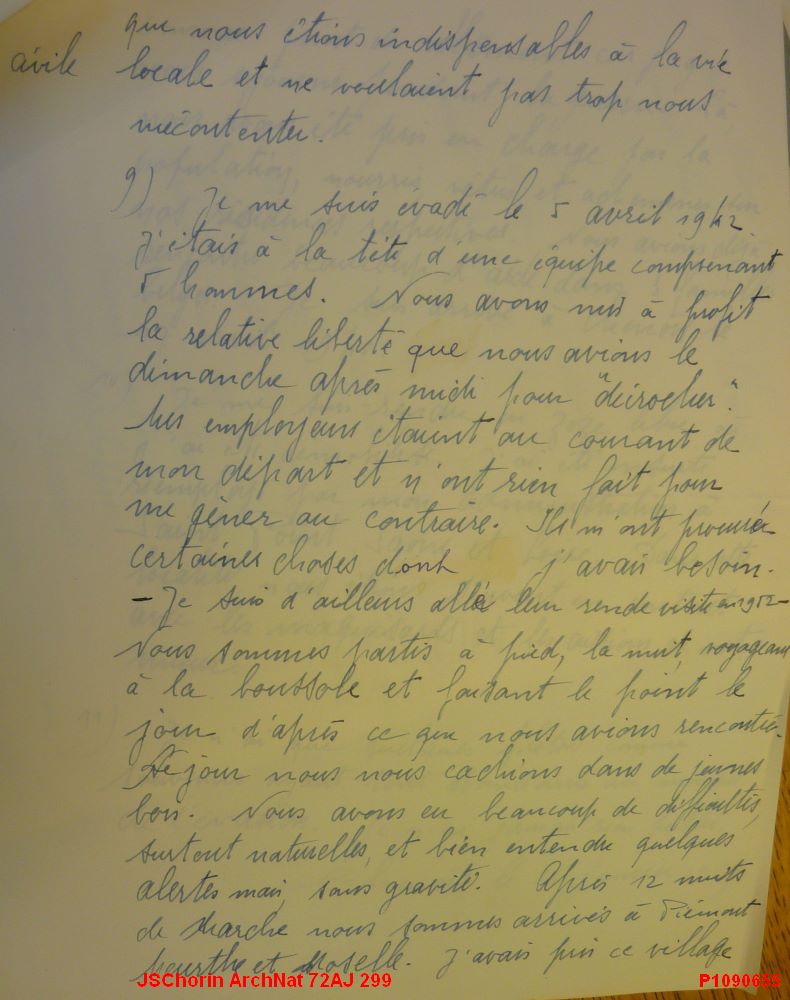 que nous étions indispensables à la vie
civile locale et ne voulaient pas trop nous
mécontenter.
9) Je me suis évadé le 5 avril 1942.
J'étais à la tête d'une équipe comprenant
5 hommes. Nous avons mis à profit
la relative liberté que nous avions le
dimanche après midi pour "décrocher".
Mes employeurs étaient au courant de
mon départ et n'ont rien fait pour
me gêner au contraire. Ils m'ont procuré
certaines choses dont j'avais besoin.
- Je suis d'ailleurs allé leur rendre visite en 1952 -
Nous sommes partis à pied, la nuit, voyageant
à la boussole et faisant le point le
jour d'après ce que nous avions rencontré.
Le jour nous nous cachions dans de jeunes
bois. Nous avons eu beaucoup de difficultés,
surtout naturelles, et bien entendu quelques
alertes mais sans gravité. Après 12 nuits
de marche nous sommes arrivés à
Meurthe et Moselle. J'avais pris ce village
JSChorin ArchNat 72AJ 299
P1090655